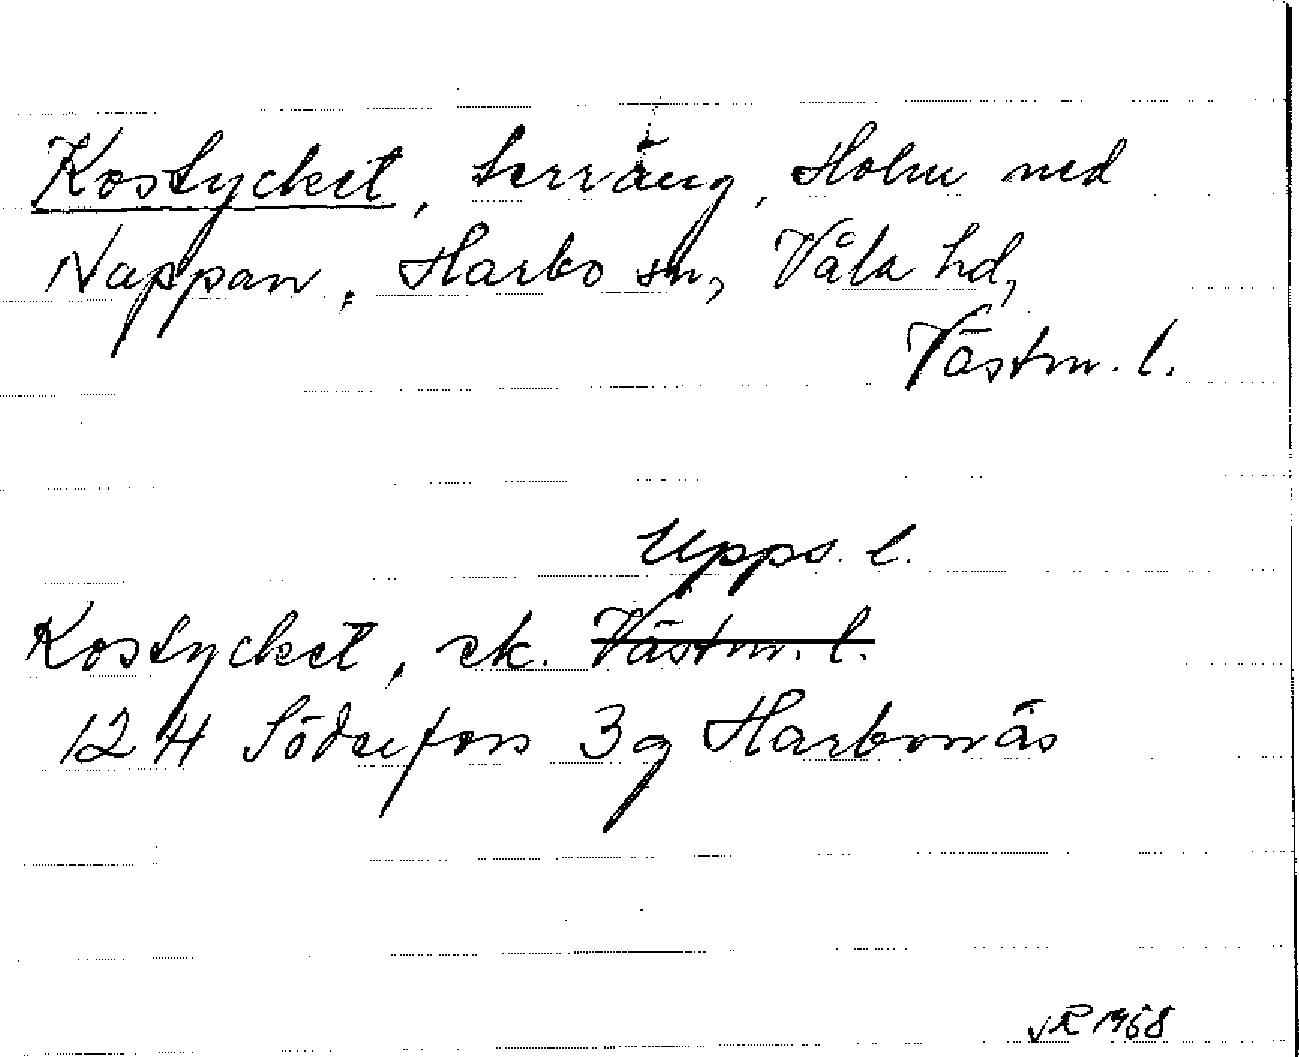 Kostycket, terräng, Holm med
Nappan, Harbo sn, Våla hd,
Västm. l.
Upps. l.
Kostycket, ek. Västm. l.
12 H Söderfors 3 g Harbonäs
1968